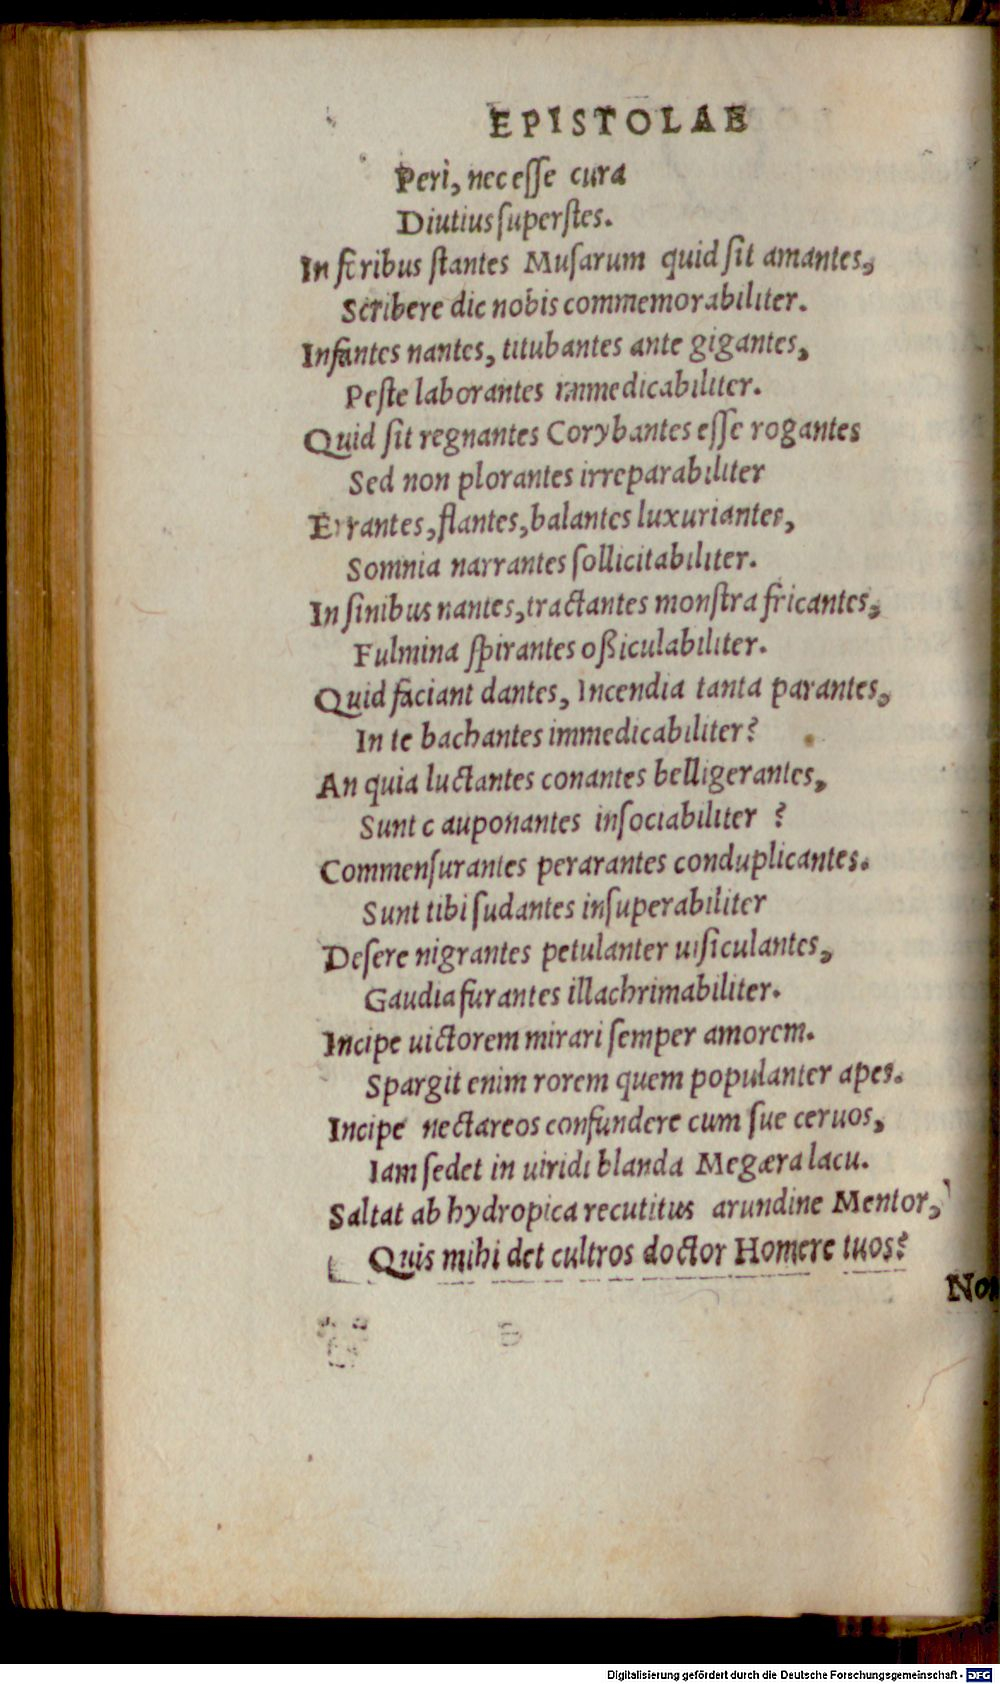 EPISTOLAE
Perì, nec eſſe cura
Diutius ſuperſtes.
In ſcribus ſtantes Muſarum quid ſit amantes,
Scribere dic nobis commemorabiliter.
Infantes nantes, titubantes ante gigantes,
Peſte laborantes immedicabiliter.
Quid ſit regnantes Corybantes eſſe rogantes
Sed non plorantes irreparabiliter
Errantes, flantes, balantes luxuriantes,
Somnia narrantes ſollicitabiliter.
In ſinibus nantes, tractantes monſtra fricantes,
Fulmina ſpirantes oßiculabiliter.
Quid faciant dantes, Incendia tanta parantes,
In te bachantes immedicabiliter?
An quia luctantes conantes belligerantes,
Sunt c auponantes inſociabiliter ?
Commenſurantes perarantes conduplicantes.
Sunt tibi ſudantes inſuperabiliter
Deſere nigrantes petulanter uiſiculantes,
Gaudia furantes illachrimabiliter.
Incipe uictorem mirari ſemper amorem.
Spargit enim rorem quem populanter apes.
Incipe nectareos confundere cum ſue ceruos,
Iam ſedet in uiridi blanda Megæra lacu.
Saltat ab hydropica recutitus arundine Mentor,
Quis mihi det cultros doctor Homere tuos?
Digitalisierung gefördert durch die Deutsche Forschungsgemeinschaft - DFG